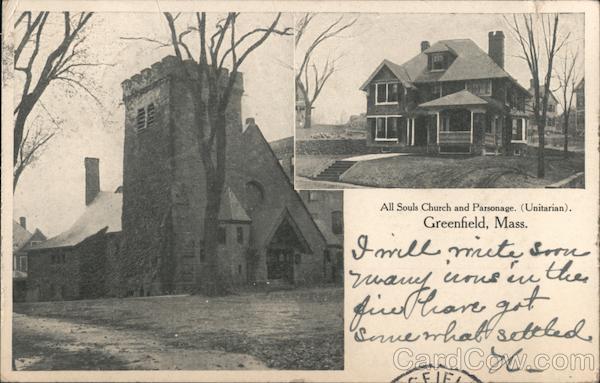 All Souls Church and Parsonage. (Unitarian).
Greenfield, Mass.
I will write soon
many irons in the
fire have got
somewhat settled
CardCow.com